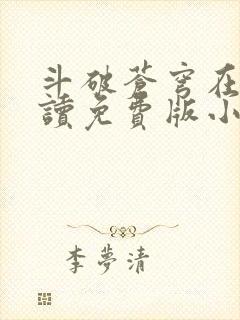 斗破蒼穹在
讀免費版小
李夢清